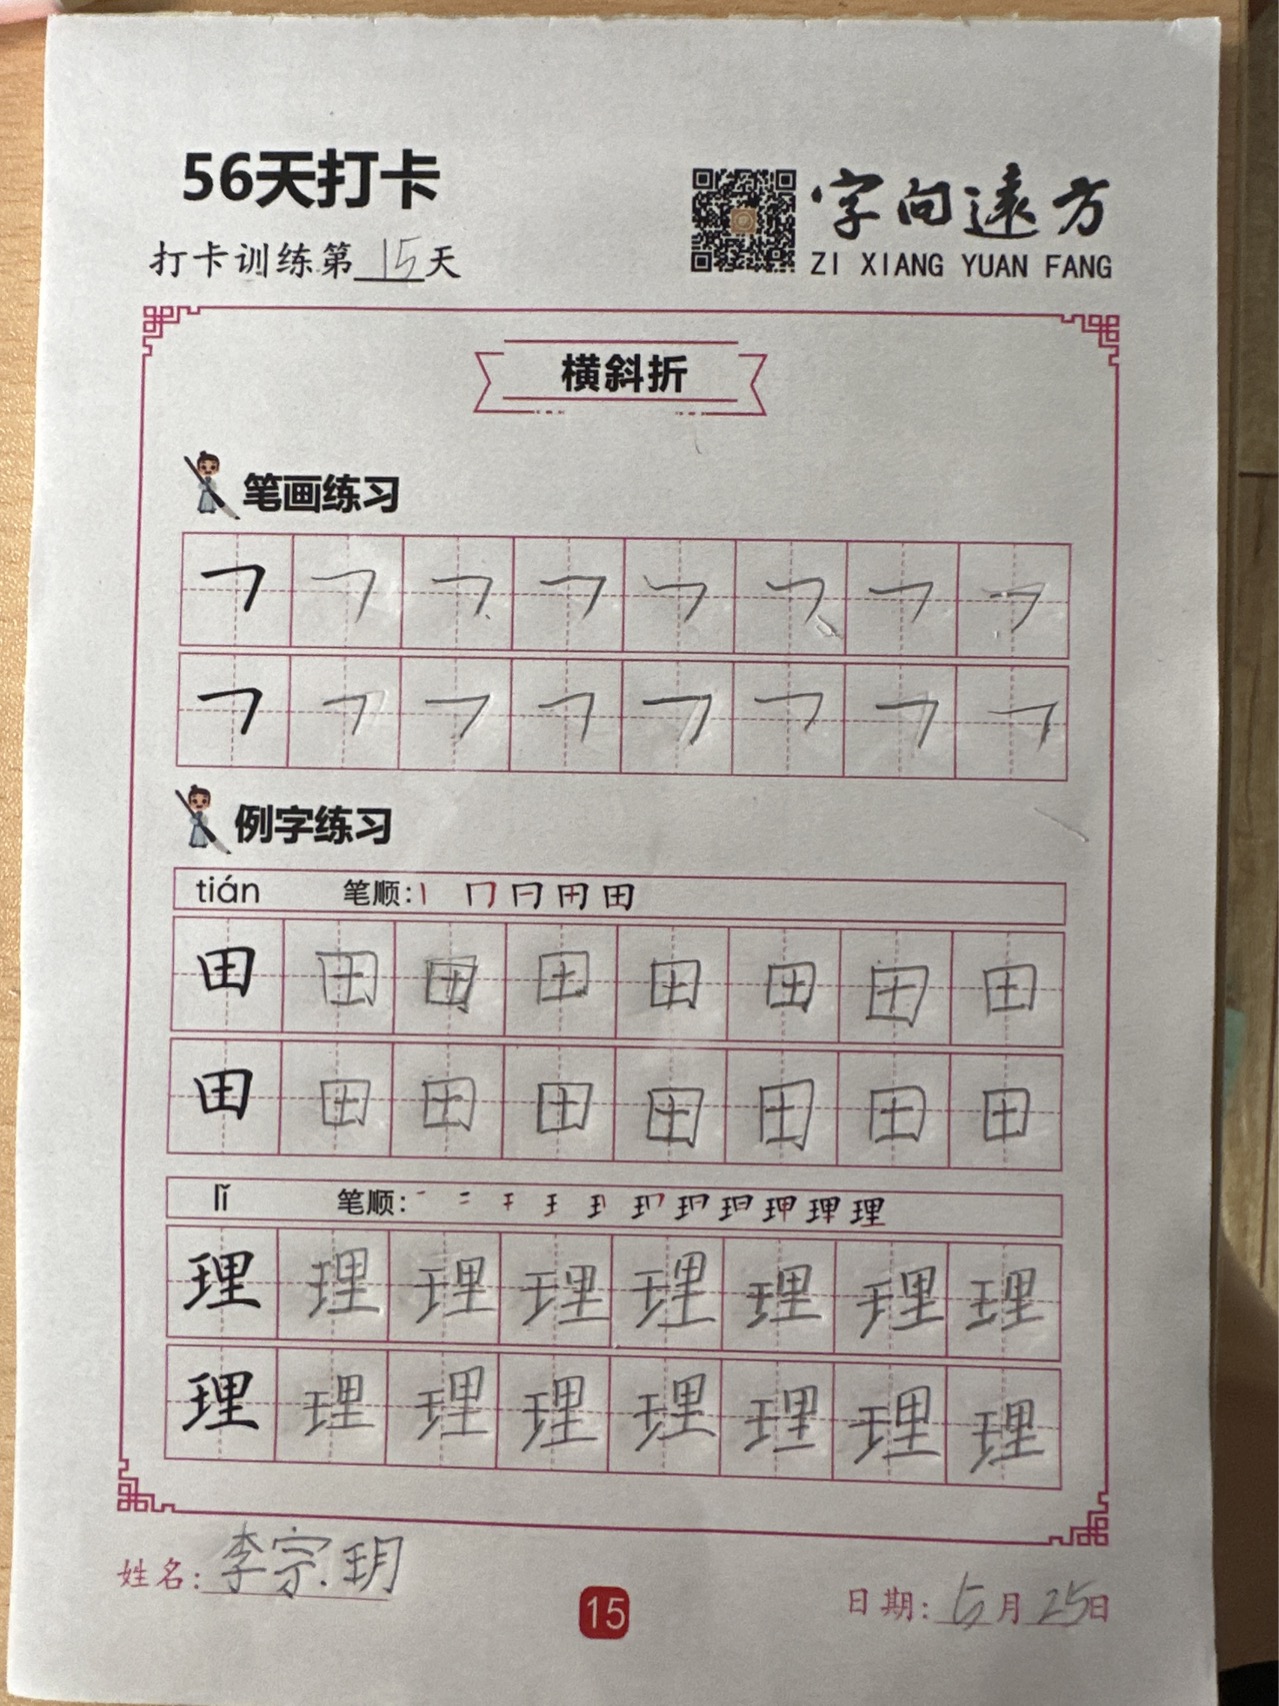 56天打卡
字向遠方
打卡训练第15天
ZI XIANG YUAN FANG
横斜折
笔画练习
㇕ ㇕ ㇕ ㇕ ㇕ ㇕ ㇕ ㇕
㇕ ㇕ ㇕ ㇕ ㇕ ㇕ ㇕ ㇕
例字练习
tián 笔顺:丨 冂 冃 田 田
田 田 田 田 田 田 田 田
田 田 田 田 田 田 田 田
lǐ 笔顺:
理 理 理 理 理 理 理 理
理 理 理 理 理 理 理 理
姓名:李宗玥
15
日期:5月25日